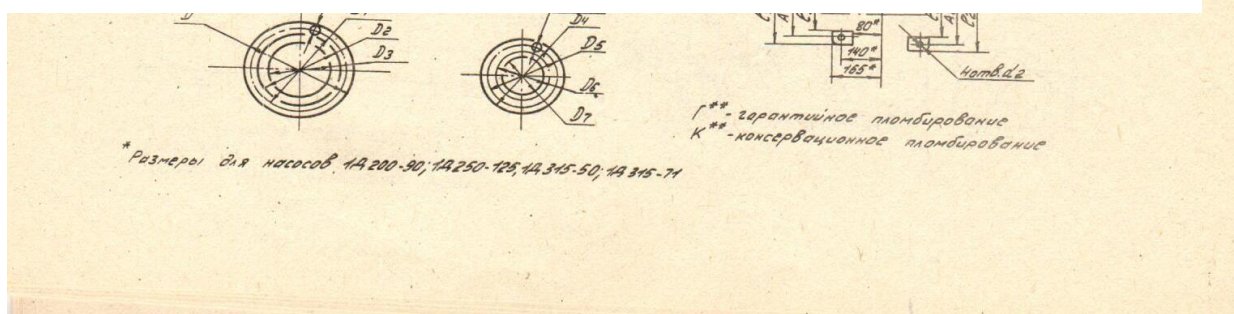 D2
D3
D4
D5
D6
D7
80*
140*
165*
4отв. d2
Г** - гарантийное пломбирование
К** - консервационное пломбирование
* Размеры для насосов 1Д200-90; 1Д250-125, 1Д315-50; 1Д315-71